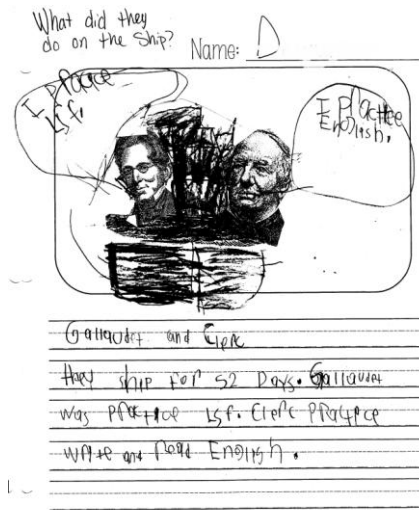 What did they
do on the Ship?
Name: D
I practice
Lsf.
I practice
English.
Gallaudet and Clerc
they ship for 52 Days. Gallaudet
was practice Lsf. Clerc practice
write and Read English.